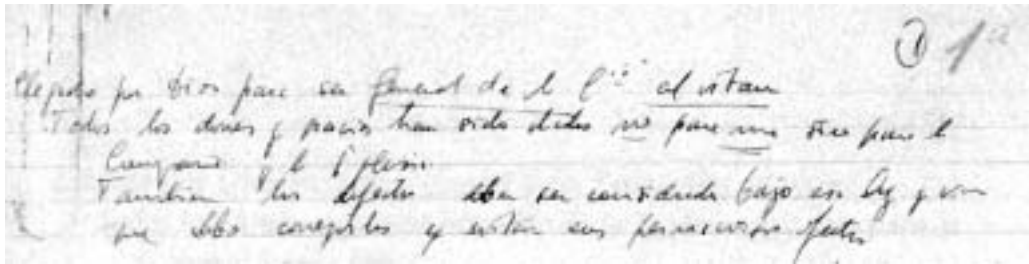 ① 1ª
Elegido por Dios para ser General de la C.ía al
Todos los dones y gracias han sido dados no para mi sino para la
Compañía y la Iglesia
También los defectos deben ser considerados bajo esa luz y
que debo corregirlos y evitar sus perniciosos